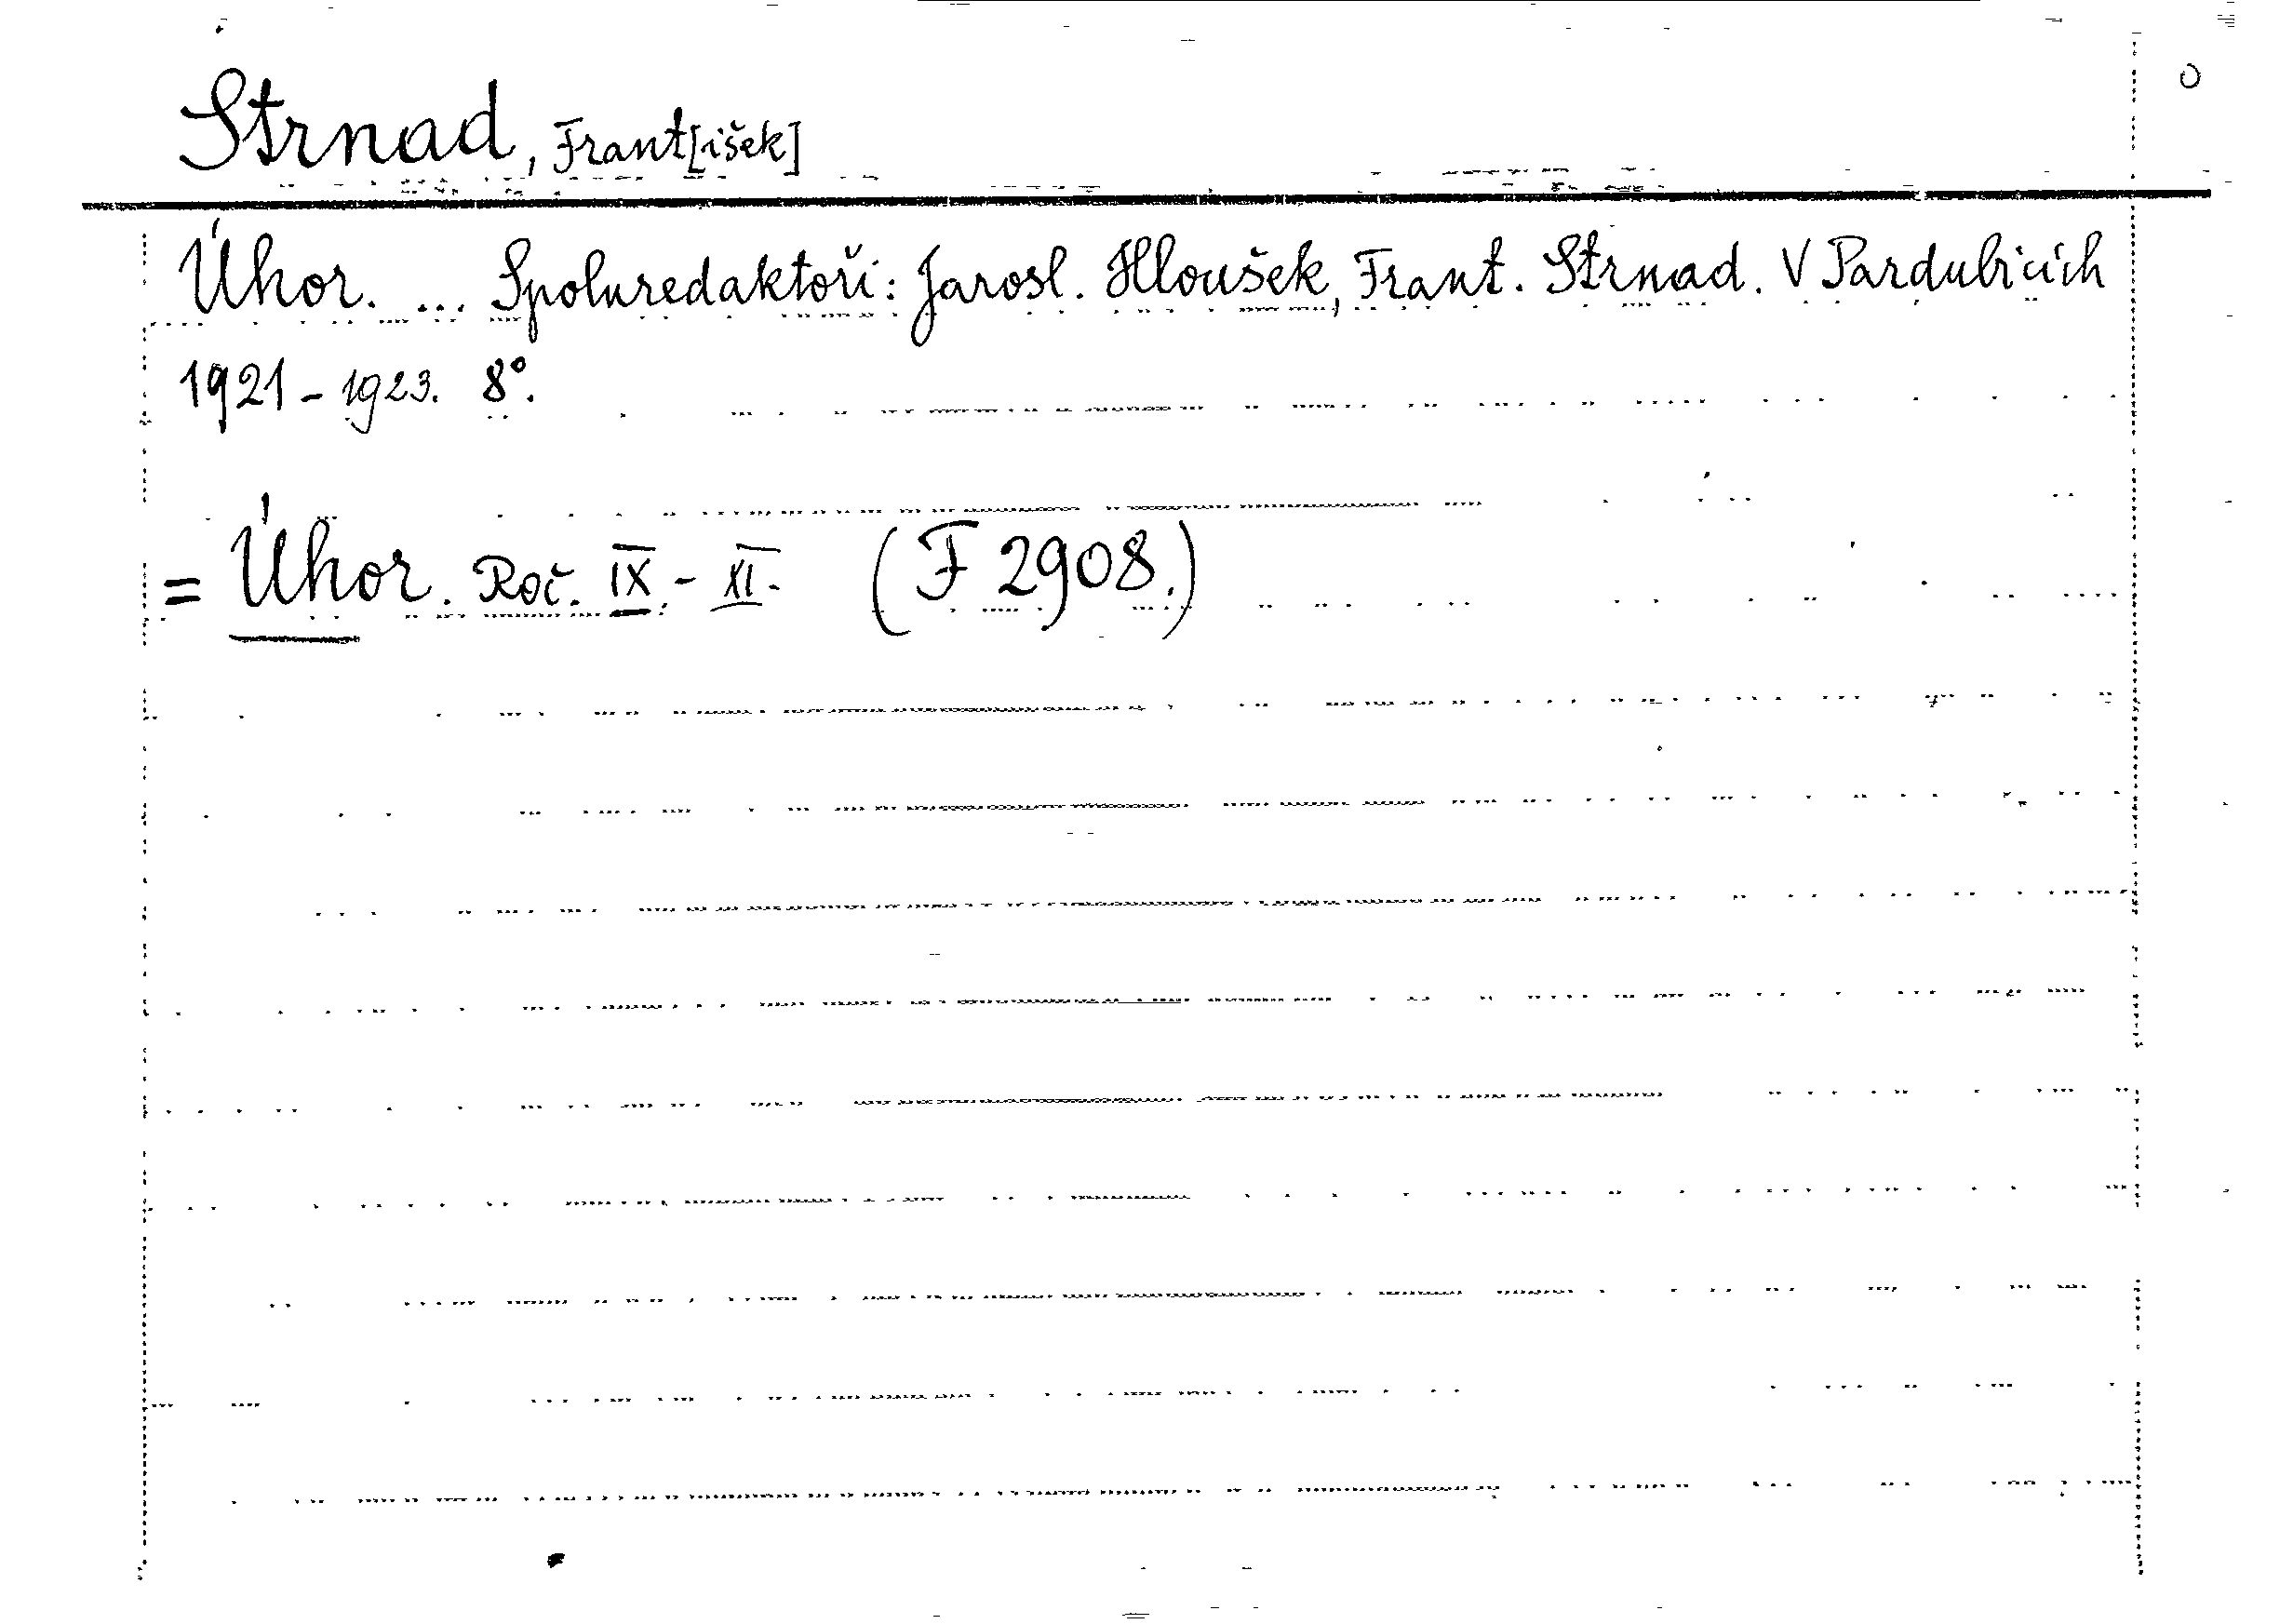 Strnad, Frant[išek]
Úhor. ... Spoluredaktoři: Jarosl. Hloušek, Frant. Strnad. V Pardubicích
1921-1923. 8°.
= Úhor. Roč. IX.-XI. (F 2908.)